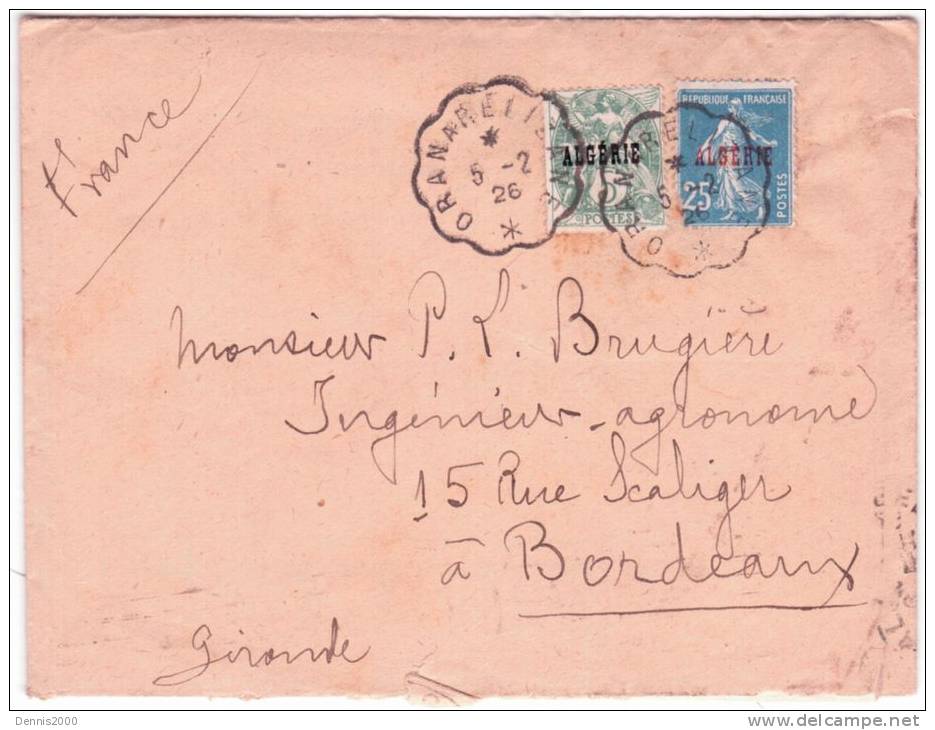 France
ORAN A RELIZANE
5 -2
26
ALGÉRIE
5
POSTES
RÉPUBLIQUE FRANÇAISE
ALGÉRIE
25
POSTES
ORAN A REL
5 -2
26
Monsieur P. L. Brugière
Ingénieur-agronome
15 Rue Scaliger
à Bordeaux
Gironde
Dennis2000
www.delcampe.net